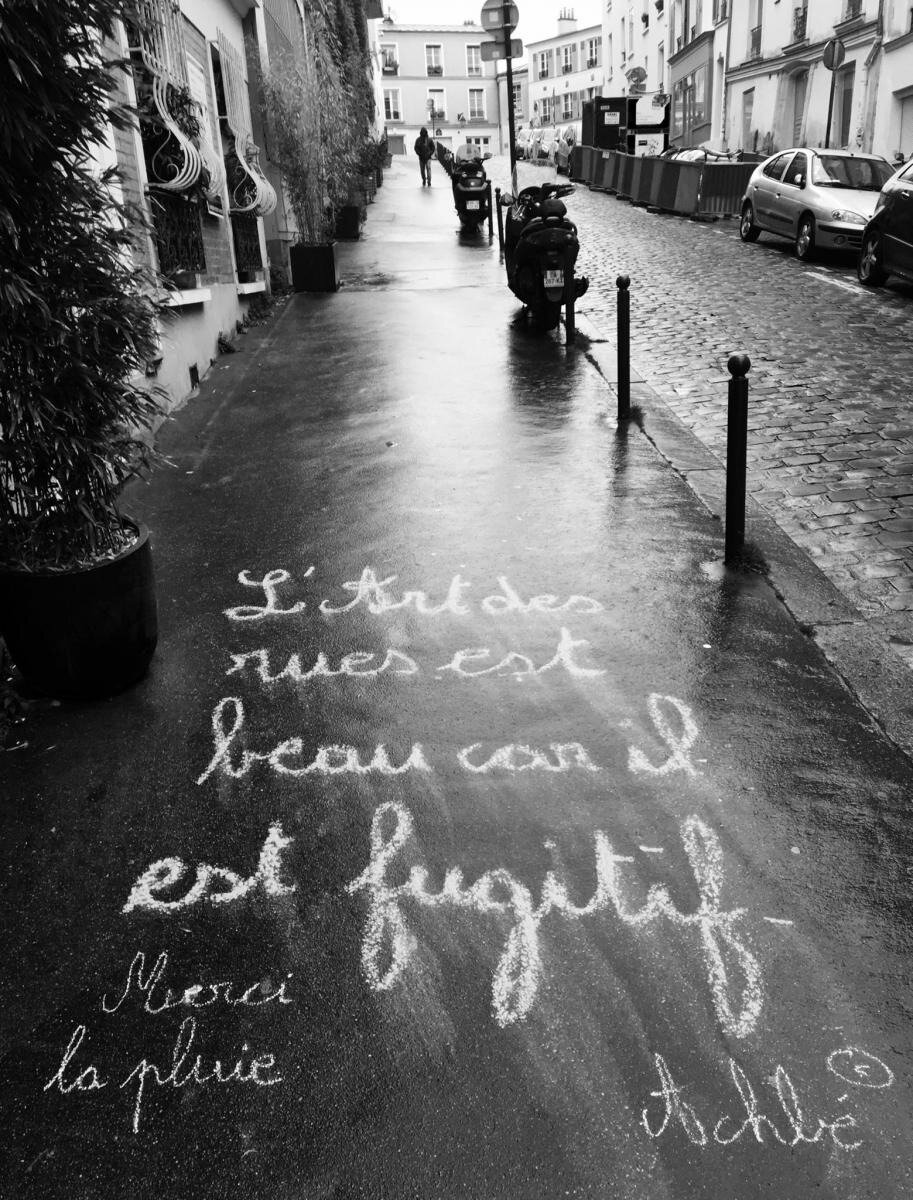 L'Art des
rues est
beau car il
est fugitif
Merci
la pluie
Achbé